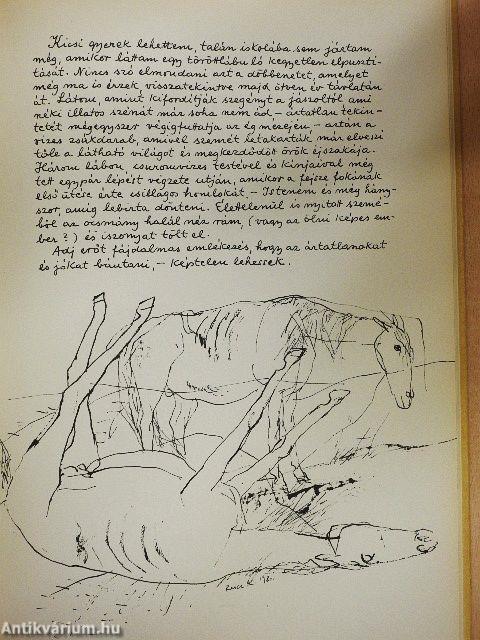 Kicsi gyerek lehettem, talán iskolába sem jártam
még, amikor láttam egy töröttlábu ló kegyetlen elpuszti-
tását. Nincs szó elmondani azt a döbbenetet, amelyet
még ma is érzek visszatekintve majd ötven év távlatán
át. Látom, amint kiforditják szegényt a jászoltól ami
néki illatos szénát már soha nem ád – ártatlan tekin-
tetét mégegyszer végigfuttatja az ég mezején, – aztán a
vizes zsákdarab, amivel szemét letakarták, már elveszi
tőle a látható világot és megkezdődött örök éjszakája.
Három lábon, csuromvizes testével és kinjaival még
tett egypár lépést végzete utján, amikor a fejsze fokának
első ütése érte csillagos homlokát, – Istenem és még hány-
szor, amig lebirta dönteni. Élettelenül is nyitott szemé-
ből az ocsmány halál néz rám, (vagy az ölni képes em-
ber?) és iszonyat tölt el.
Adj erőt fájdalmas emlékezés, hogy az ártatlanokat
és jókat bántani, – képtelen lehessek.
Antikvárium.hu